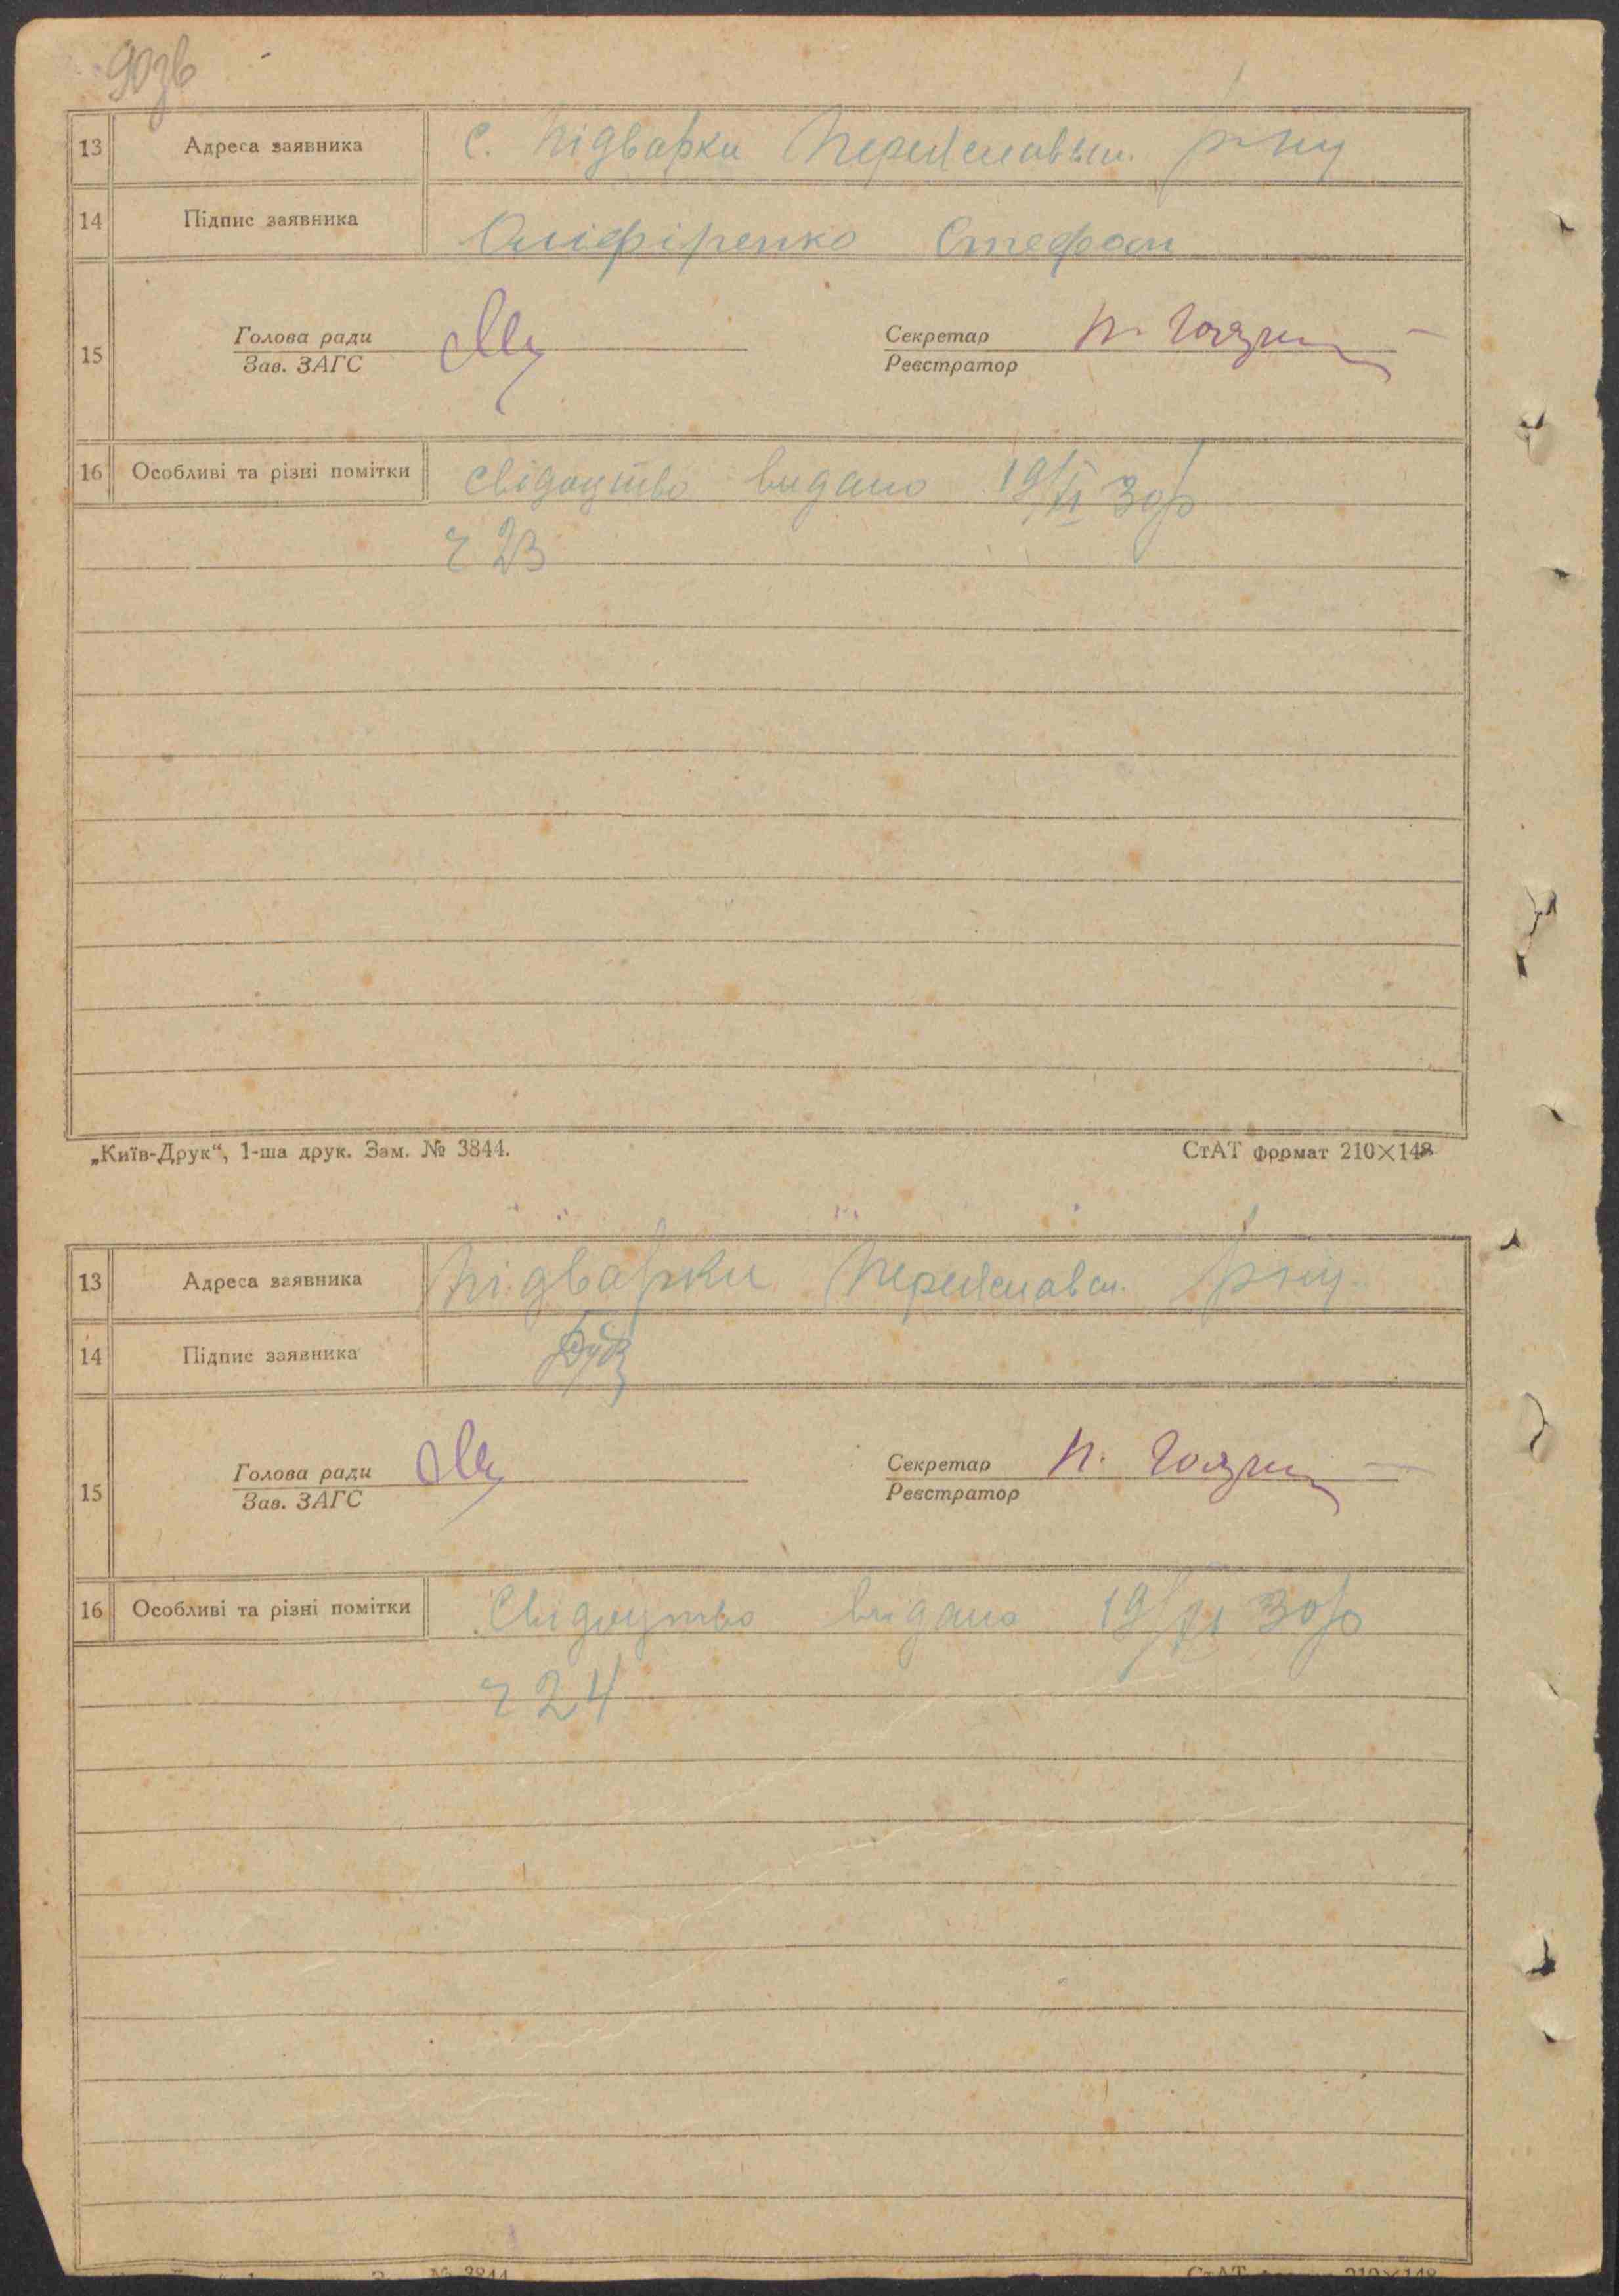 90зв
13 Адреса заявника с. Підварки Переяславськ. р-ну
14 Підпис заявника Оліфіренко Стефан
Голова ради Секретар
15 Зав. ЗАГС Реєстратор
16 Особливі та різні помітки свідоцтво видано 19/VI 30 р
ч 23
„Київ-Друк“, 1-ша друк. Зам. № 3844. СтАТ формат 210×148
13 Адреса заявника Підварки Переяславськ. р-ну
14 Підпис заявника
Голова ради Секретар
15 Зав. ЗАГС Реєстратор
16 Особливі та різні помітки Свідоцтво видано 19/VI 30 р
ч 24